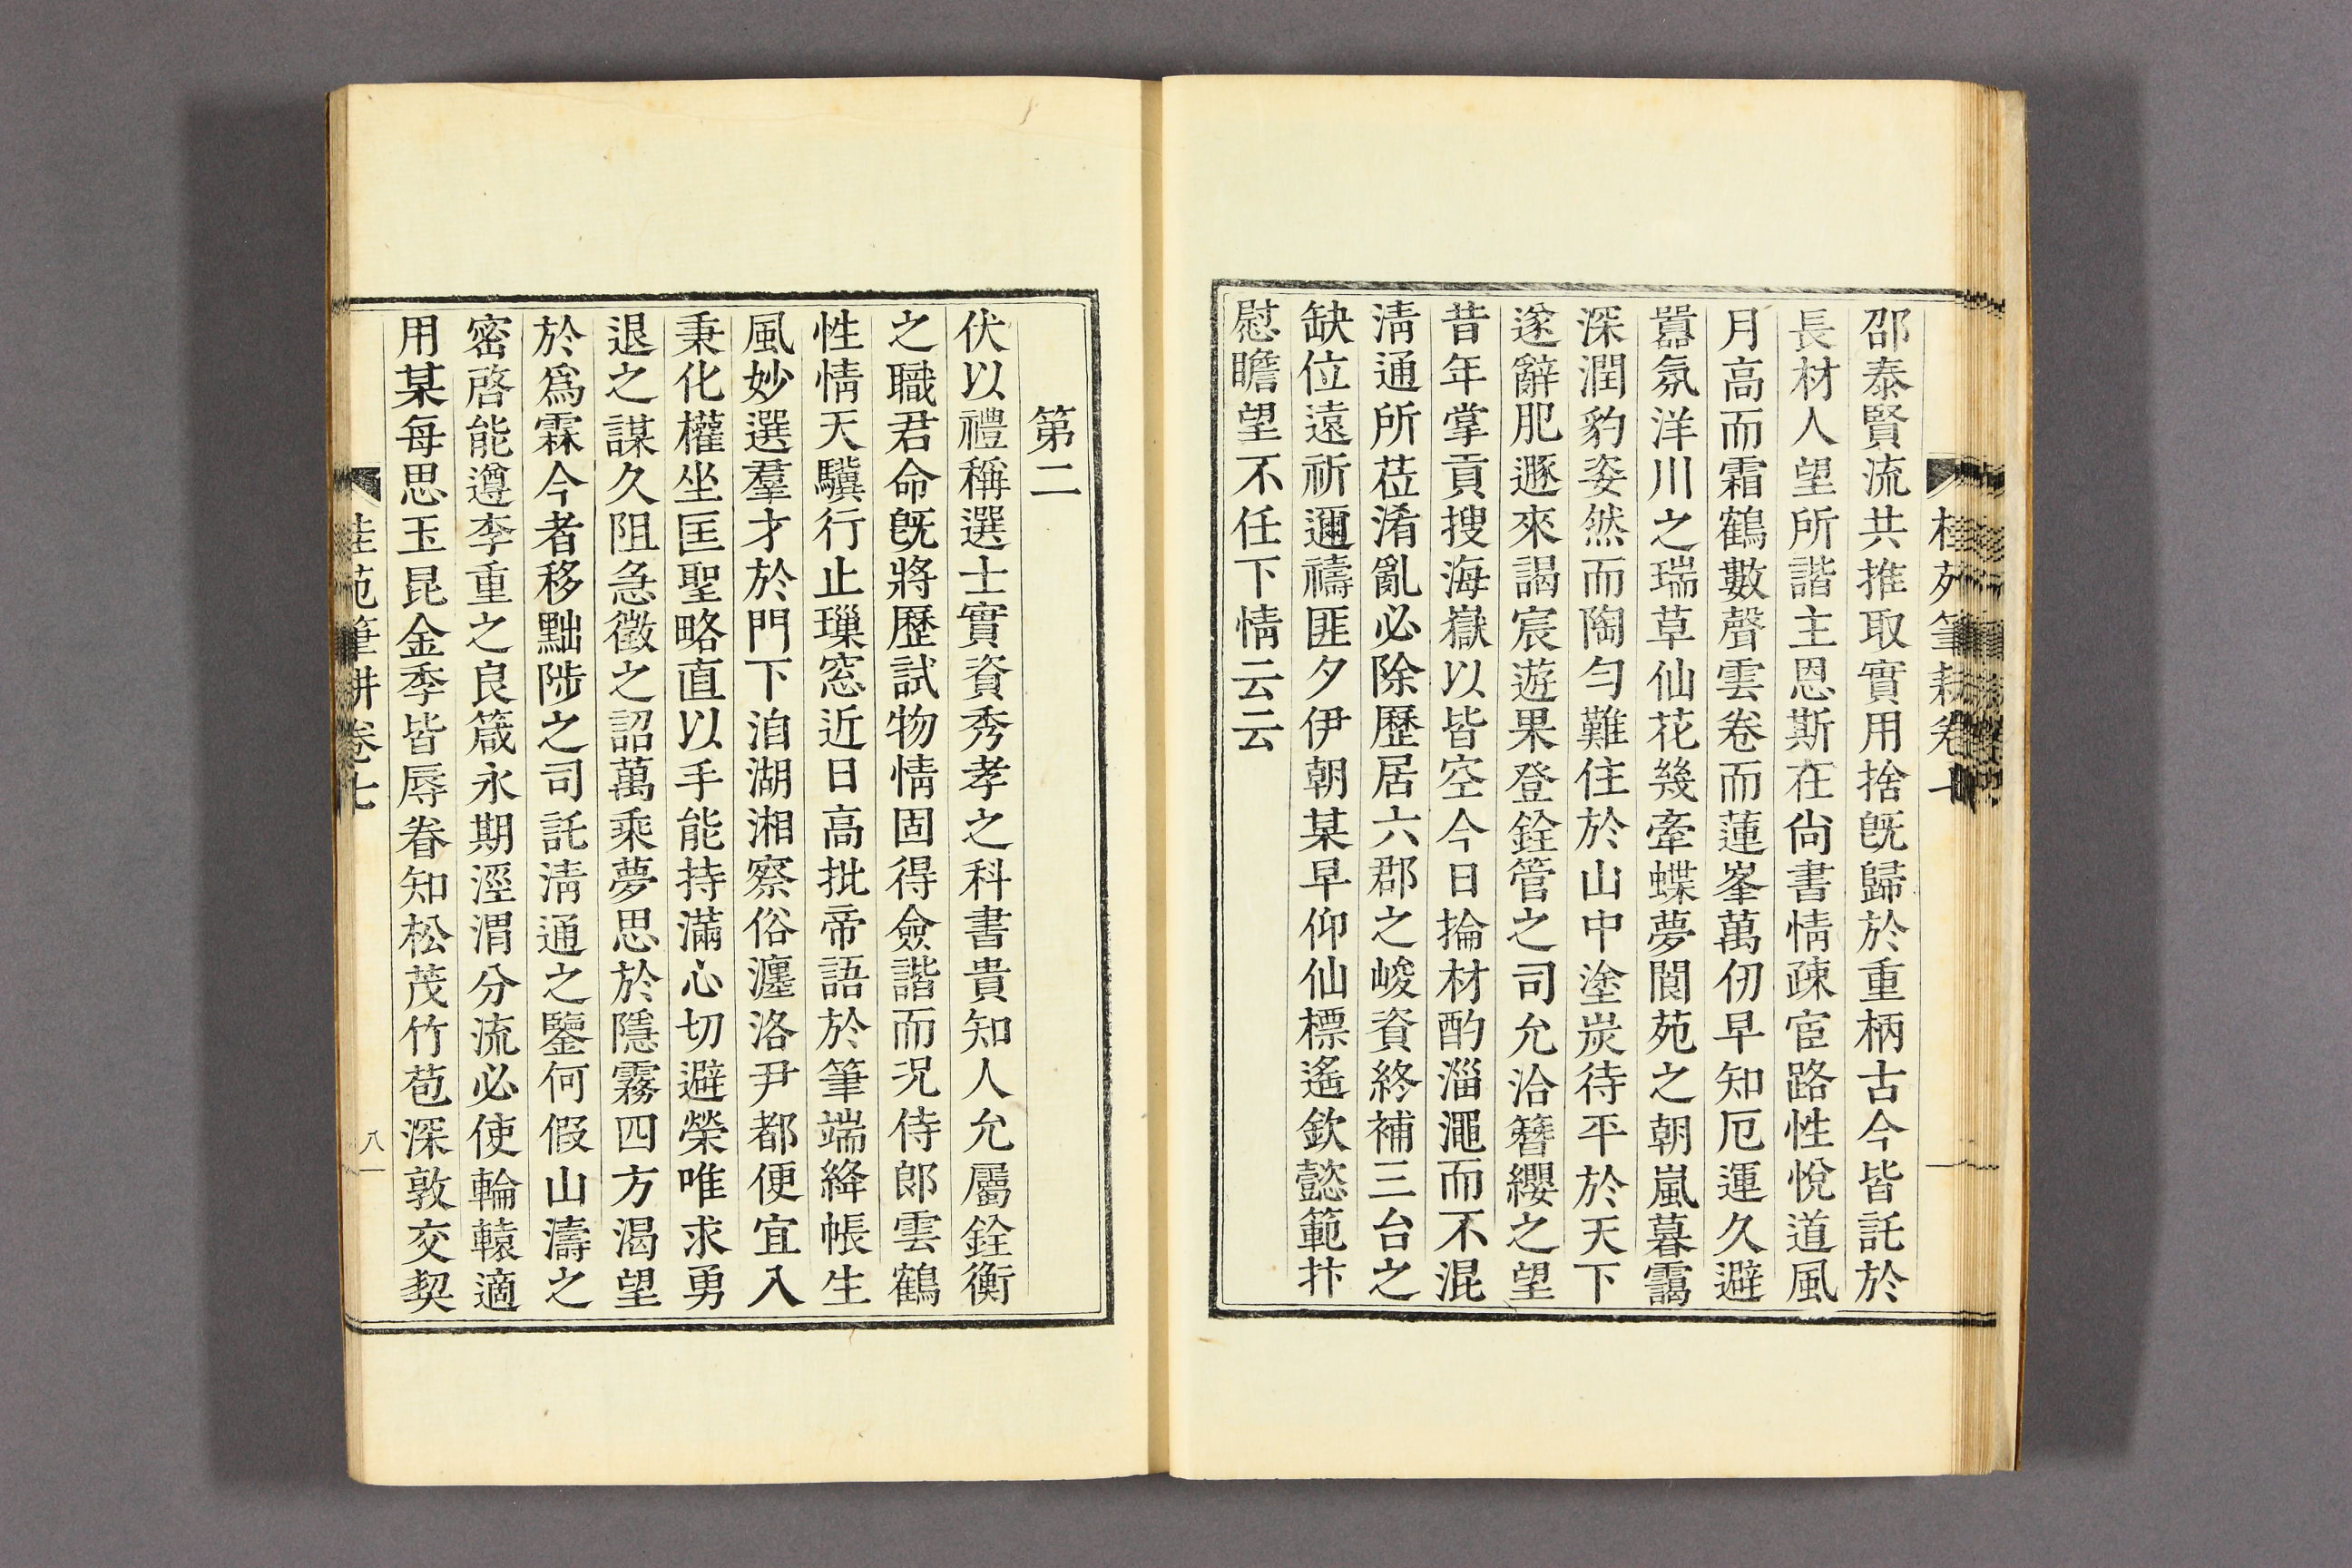 邵泰賢流共推取實用捨旣歸於重柄古今皆託於
長材人望所諧主恩斯在尙書情疎宦路性悅道風
月高而霜鶴數聲雲卷而蓮峯萬仞早知厄運久避
囂氛洋川之瑞草仙花幾牽蝶夢閬苑之朝嵐暮靄
深潤豹姿然而陶勻難住於山中塗炭待平於天下
遂辭肥遯來謁宸遊果登銓管之司允洽簪纓之望
昔年掌貢搜海嶽以皆空今日掄材酌淄澠而不混
淸通所莅淆亂必除歷居六郡之峻資終補三台之
缺位遠祈邇禱匪夕伊朝某早仰仙標遙欽懿範抃
慰瞻望不任下情云云
第二
伏以禮稱選士實資秀孝之科書貴知人允屬銓衡
之職君命旣將歷試物情固得僉諧而況侍郞雲鶴
性情天驥行止璅窓近日高批帝語於筆端絳帳生
風妙選羣才於門下洎湖湘察俗瀍洛尹都便宜入
秉化權坐匡聖略直以手能持滿心切避榮唯求勇
退之謀久阻急徵之詔萬乘夢思於隱霧四方渴望
於爲霖今者移黜陟之司託淸通之鑒何假山濤之
密啓能遵李重之良箴永期涇渭分流必使輪轅適
用某每思玉昆金季皆辱眷知松茂竹苞深敦交契
桂苑筆耕卷七
八